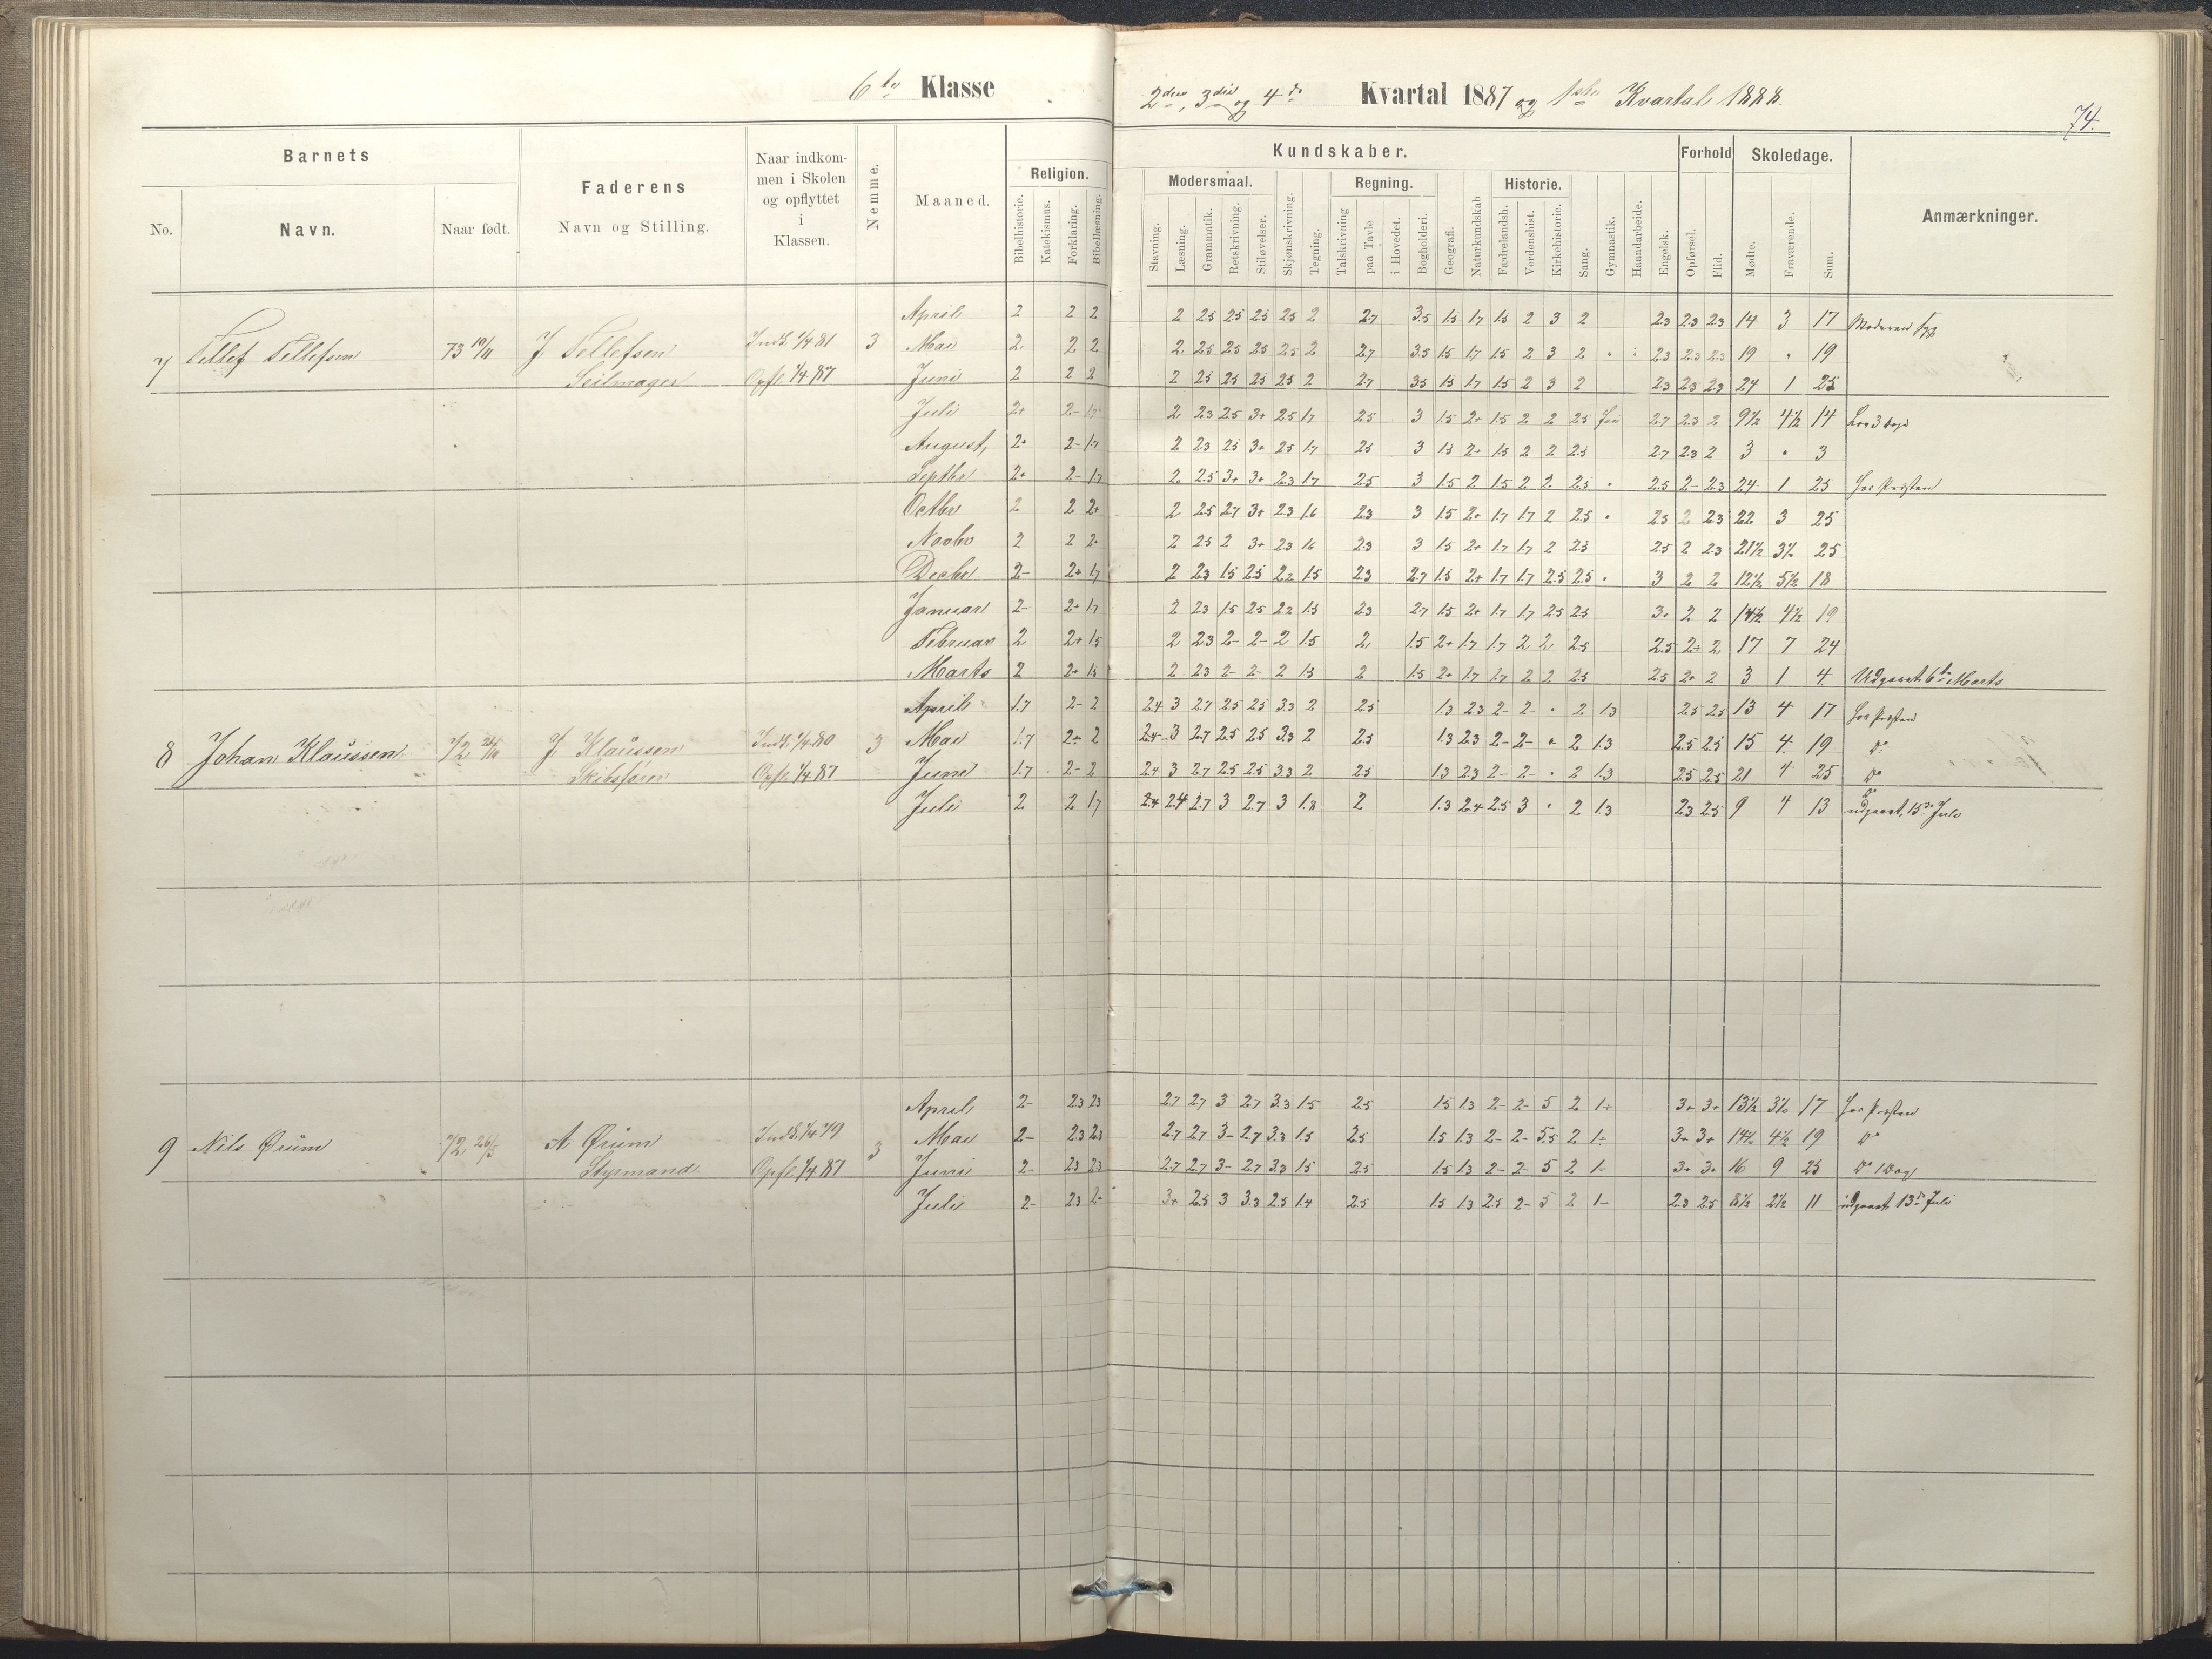 6te Klasse
2den, 3die og 4de Kvartal 1887 og 1ste Kvartal 1888.
74.
Barnets
No.
Navn.
Naar født.
Faderens
Navn og Stilling.
Naar indkom-
men i Skolen
og opflyttet
i
Klassen.
Nemme.
Maaned.
Religion.
Bibelhistorie.
Katekismus.
Forklaring.
Bibellæsning.
Kundskaber.
Modersmaal.
Stavning.
Læsning.
Grammatik.
Retskrivning.
Stiløvelser.
Skjønskrivning.
Tegning.
Regning.
Talskrivning
paa Tavle
i Hovedet.
Bogholderi.
Geografi.
Naturkundskab
Historie.
Fædrelandsh.
Verdenshist.
Kirkehistorie.
Sang.
Gymnastik.
Haandarbeide.
Engelsk.
Forhold
Opførsel.
Flid.
Skoledage.
Mødte.
Fraværende.
Sum.
Anmærkninger.
April 2 2 2 2 2.5 2.5 2.5 2.5 2 2.7 3.5 1.5 1.7 1.5 2 3 2 2.3 2.3 2.3 14 3 17 Moderen syg
7 Tellef Tellefsen 73 19/11 J. Tellefsen Inds. 1/4 81 3 Mai 2 2 2 2 2.5 2.5 2.5 2.5 2 2.7 3.5 1.5 1.7 1.5 2 3 2 2.3 2.3 2.3 19 " 19
Seilmager Opfl. 1/4 87 Juni 2 2 2 2 2.5 2.5 2.5 2.5 2 2.7 3.5 1.5 1.7 1.5 2 3 2 2.3 2.3 2.3 24 1 25
Juli 2+ 2- 1.7 2 2.3 2.5 3+ 2.5 1.7 2.5 3 1.5 2+ 1.5 2 2 2.5 2.7 2.3 2 9½ 4½ 14
August, 2+ 2- 1.7 2 2.3 2.5 3+ 2.5 1.7 2.5 3 1.5 2+ 1.5 2 2 2.5 2.7 2.3 2 3 " 3
Septbr 2+ 2- 1.7 2 2.5 3+ 3+ 2.3 1.7 2.5 3 1.5 2 1.5 2 2 2.5 " 2.5 2- 2.3 24 1 25 hos Præsten
Octbr 2 2 2+ 2 2.5 2.7 3+ 2.3 1.6 2.3 3 1.5 2+ 1.7 1.7 2 2.5 " 2.5 2 2.3 22 3 25
Novbr 2 2 2+ 2 2.5 2 3+ 2.3 1.6 2.3 3 1.5 2+ 1.7 1.7 2 2.5 2.5 2 2.3 21½ 3½ 25
Decbr 2- 2+ 1.7 2 2.3 1.5 2.5 2.2 1.5 2.3 2.7 1.5 2+ 1.7 1.7 2.5 2.5 " 3 2 2 12½ 5½ 18
Januar 2- 2+ 1.7 2 2.3 1.5 2.5 2.2 1.5 2.3 2.7 1.5 2+ 1.7 1.7 2.5 2.5 3+ 2 2 14½ 4½ 19
Februar 2 2+ 1.5 2 2.3 2- 2- 2 1.5 2 1.5 2+ 1.7 1.7 2 2 2.5 2.5 2+ 2 17 7 24
Marts 2 2+ 1.5 2 2.3 2- 2- 2 1.5 2 1.5 2+ 1.7 1.7 2 2 2.5 2.5 2+ 2 3 1 4 Udgaaet 6te Marts
April 1.7 2- 2 2.4 3 2.7 2.5 2.5 3.3 2 2.5 1.3 2.3 2- 2- " 2 1.3 2.5 2.5 13 4 17 hos Præsten
8 Johan Klaussen 72 24/10 J. Klaussen Inds. 1/9 80 3 Mai 1.7 2- 2 2.4 3 2.7 2.5 2.5 3.3 2 2.5 1.3 2.3 2- 2- " 2 1.3 2.5 2.5 15 4 19 Do
Skibsfører Opfl. 1/4 87 Juni 1.7 2- 2 2.4 3 2.7 2.5 2.5 3.3 2 2.5 1.3 2.3 2- 2- " 2 1.3 2.5 2.5 21 4 25 Do
Juli 2 2 1.7 2.4 2.4 2.7 3 2.7 3 1.8 2 1.3 2.4 2.5 3 " 2 1.3 2.3 2.5 9 4 13 Do udgaaet, 15de Juli
April 2- 2.3 2.3 2.7 2.7 3 2.7 3.3 1.5 2.5 1.5 1.3 2- 2- 5 2 1- 3+ 3+ 13½ 3½ 17 hos Præsten
9 Nils Ørum 72 26/5 A. Ørum Inds. 1/4 79 3 Mai 2- 2.3 2.3 2.7 2.7 3- 2.7 3.3 1.5 2.5 1.5 1.3 2- 2- 5.5 2 1- 3+ 3+ 14½ 4½ 19 Do
Styrmand Opfl. 1/4 87 Juni 2- 2.3 2.3 2.7 2.7 3- 2.7 3.3 1.5 2.5 1.5 1.3 2- 2- 5 2 1- 3+ 3+ 16 9 25 Do 1 Dag
Juli 2- 2.3 2- 3+ 2.5 3 3.3 2.5 1.4 2.5 1.5 1.3 2.5 2- 5 2 1- 2.3 2.5 8½ 2½ 11 udgaaet 13de Juli